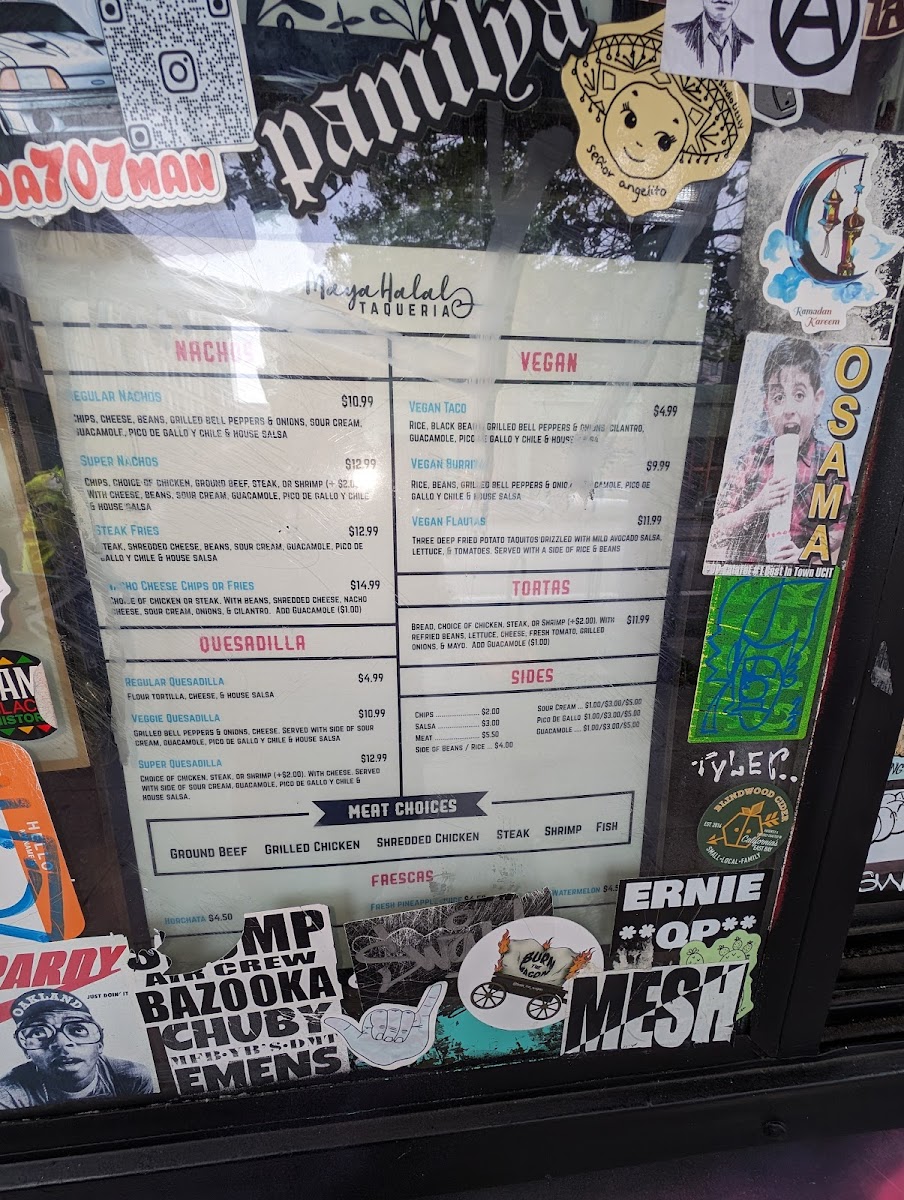 DA707MAN
Pamilya
señor angelito
Ramadan
Kareem
OSAMA
#1 Bost In Town UCIT
Maya Halal
TAQUERIA
NACHOS
REGULAR NACHOS $10.99
CHIPS, CHEESE, BEANS, GRILLED BELL PEPPERS & ONIONS, SOUR CREAM,
GUACAMOLE, PICO DE GALLO Y CHILE & HOUSE SALSA
SUPER NACHOS $12.99
CHIPS, CHOICE OF CHICKEN, GROUND BEEF, STEAK, OR SHRIMP (+ $2.0
WITH CHEESE, BEANS, SOUR CREAM, GUACAMOLE, PICO DE GALLO Y CHILE
& HOUSE SALSA
STEAK FRIES $12.99
STEAK, SHREDDED CHEESE, BEANS, SOUR CREAM, GUACAMOLE, PICO DE
GALLO Y CHILE & HOUSE SALSA
NACHO CHEESE CHIPS OR FRIES $14.99
CHOICE OF CHICKEN OR STEAK. WITH BEANS, SHREDDED CHEESE, NACHO
CHEESE, SOUR CREAM, ONIONS, & CILANTRO. ADD GUACAMOLE ($1.00)
QUESADILLA
REGULAR QUESADILLA $4.99
FLOUR TORTILLA, CHEESE, & HOUSE SALSA
VEGGIE QUESADILLA $10.99
GRILLED BELL PEPPERS & ONIONS, CHEESE. SERVED WITH SIDE OF SOUR
CREAM, GUACAMOLE, PICO DE GALLO Y CHILE & HOUSE SALSA
SUPER QUESADILLA $12.99
CHOICE OF CHICKEN, STEAK, OR SHRIMP (+$2.00). WITH CHEESE, SERVED
WITH SIDE OF SOUR CREAM, GUACAMOLE, PICO DE GALLO Y CHILE &
HOUSE SALSA.
VEGAN
VEGAN TACO $4.99
RICE, BLACK BEANS, GRILLED BELL PEPPERS & ONIONS, CILANTRO,
GUACAMOLE, PICO DE GALLO Y CHILE & HOUSE SALSA
VEGAN BURRITO $9.99
RICE, BEANS, GRILLED BELL PEPPERS & ONIO CAMOLE, PICO DE
GALLO Y CHILE & HOUSE SALSA
VEGAN FLAUTAS $11.99
THREE DEEP FRIED POTATO TAQUITOS DRIZZLED WITH MILD AVOCADO SALSA,
LETTUCE, & TOMATOES. SERVED WITH A SIDE OF RICE & BEANS
TORTAS
BREAD, CHOICE OF CHICKEN, STEAK, OR SHRIMP (+$2.00). WITH $11.99
REFRIED BEANS, LETTUCE, CHEESE, FRESH TOMATO, GRILLED
ONIONS, & MAYO. ADD GUACAMOLE ($1.00)
SIDES
CHIPS ........................ $2.00
SALSA ........................ $3.00
MEAT ........................ $5.50
SIDE OF BEANS / RICE ... $4.00
SOUR CREAM ... $1.00/$3.00/$5.00
PICO DE GALLO $1.00/$3.00/$5.00
GUACAMOLE .... $1.00/$3.00/$5.00
MEAT CHOICES
GROUND BEEF GRILLED CHICKEN SHREDDED CHICKEN STEAK SHRIMP FISH
FRESCAS
HORCHATA $4.50
FRESH PINEAPPLE JUICE $4.50
WATERMELON $4.5
TYLER..
BLINDWOOD CIDER
EST 2014
California's
EAST BAY
SMALL·LOCAL·FAMILY
HELLO
NAME
PARDY
JUST DOIN' IT
OAKLAND
MP
AIR CREW
BAZOOKA
CHUBY
MFB·YB'S·DMT
EMENS
BURN
THE
WAGON
ERNIE
**QP**
MESH